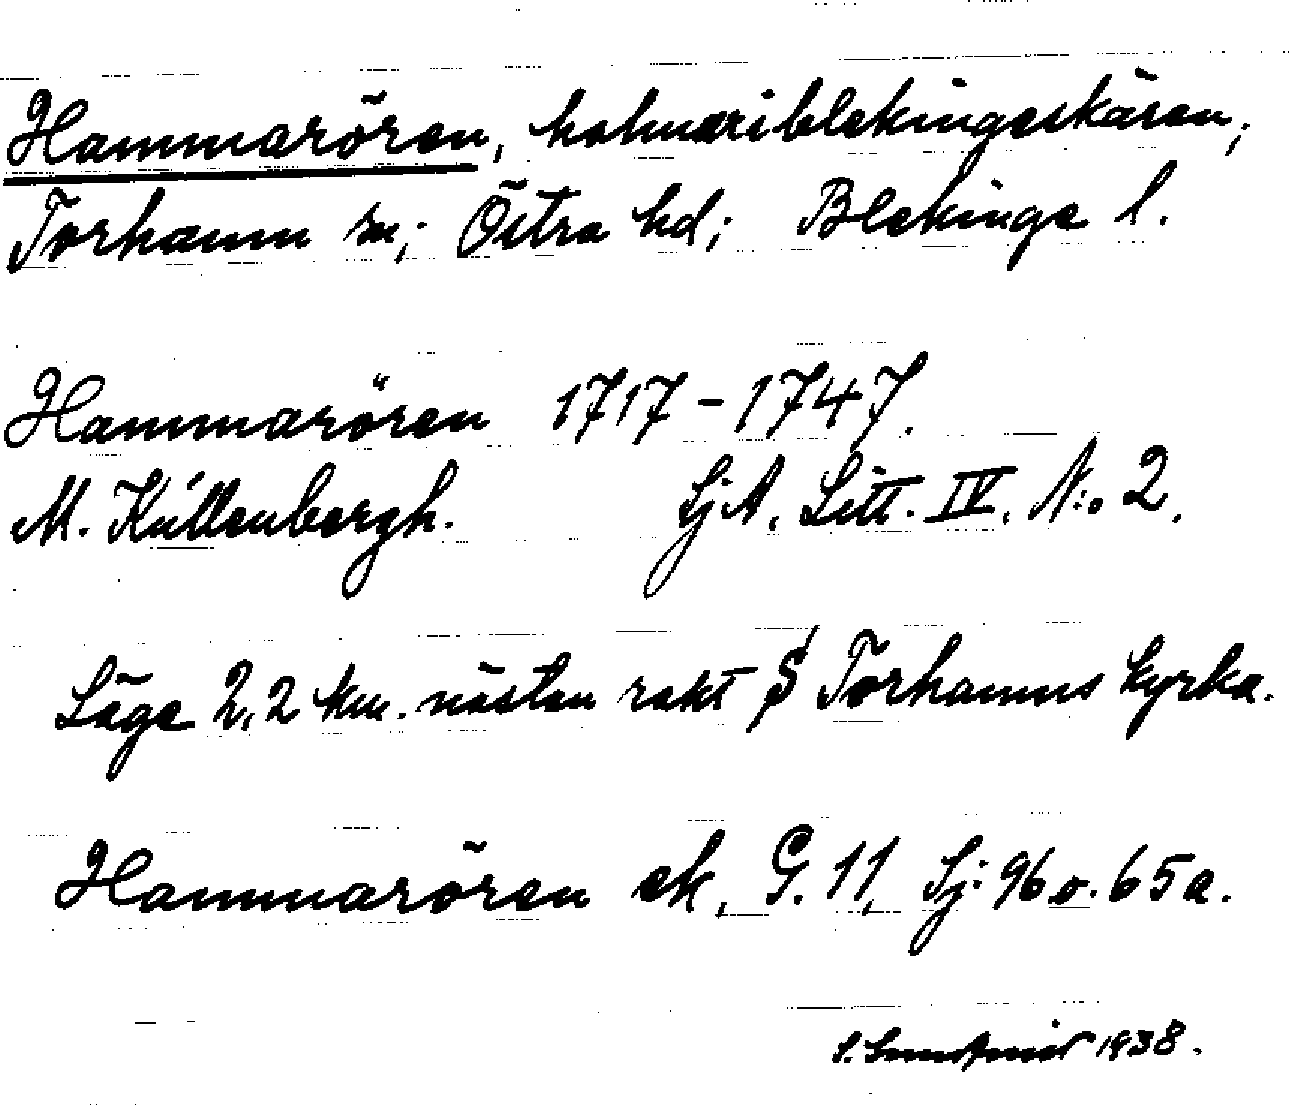 Hammarören, holmar i blekingeskären,
Torhamn sn; Östra hd; Blekinge l.
Hammarören 1717-1747.
M. Küllenbergh. SjA. Litt. IV. N:o 2.
Läge 2,2 km. nästan rakt S Torhamns kyrka.
Hammarören ek, G. 11, Sj: 96 o. 65a.
S. 1938.